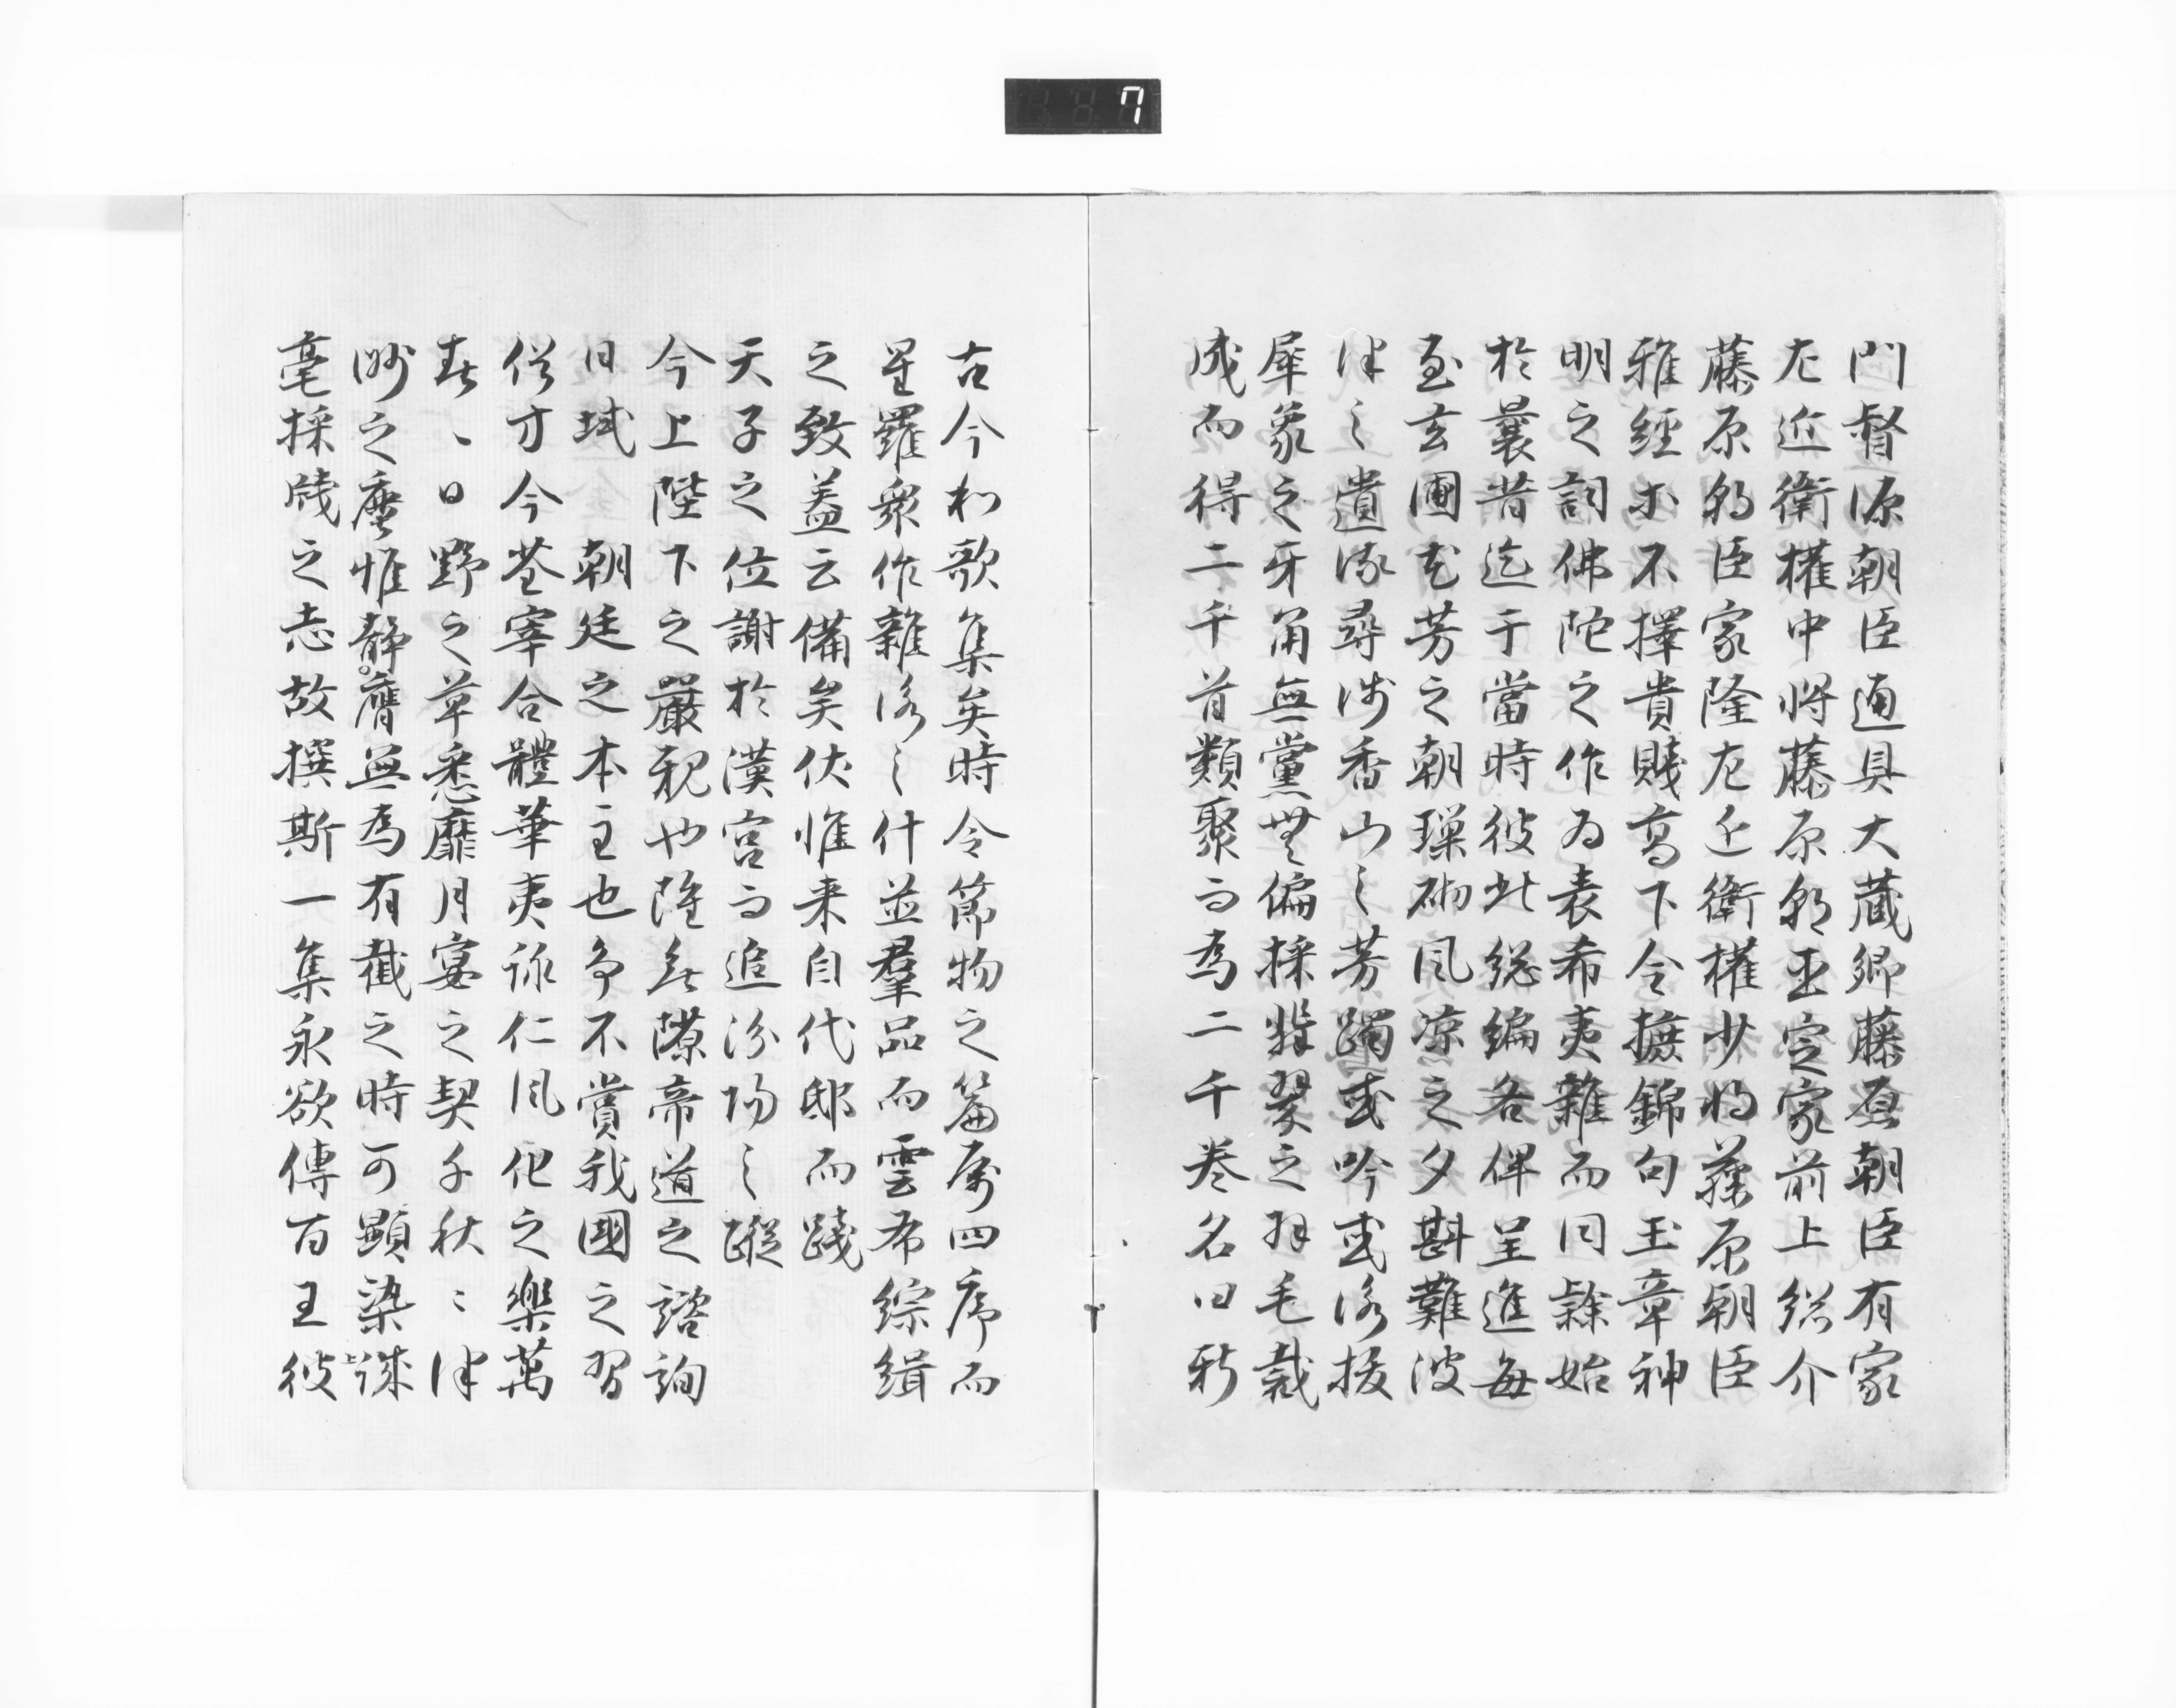 7
門督源朝臣通具大蔵卿藤原朝臣有家
左近衛権中将藤原朝臣定家前上総介
藤原朝臣家隆左近衛権少将藤原朝臣
雅経等不擇貴賤高下令摭錦句玉章神
明之詞佛陀之作為表希夷雜而同隸始
於曩昔迄于當時彼此総編各俾呈進毎
至玄圃花芳之朝璅砌風凉之夕斟難波
津之遺流尋浅香山之芳躅或吟或詠抜
犀象之牙角無黨無偏採翡翠之羽毛裁
成而得二千首類聚而為二十巻名曰新
古今和歌集矣時令節物之篇属四序而
星羅衆作雜詠之什並羣品而雲布綜緝
之致蓋云備矣伏惟来自代邸而踐
天子之位謝於漢宮而追汾陽之蹤
今上陛下之嚴親也雖無隙帝道之諮詢
日域朝廷之本主也争不賞我國之習
俗方今荃宰合體華夷詠仁風化之樂萬
春、日野之草悉靡月宴之契千秋〻津
洲之塵惟静膺無為有截之時可顯染
毫採牋之志故撰斯一集永欲傳百王彼